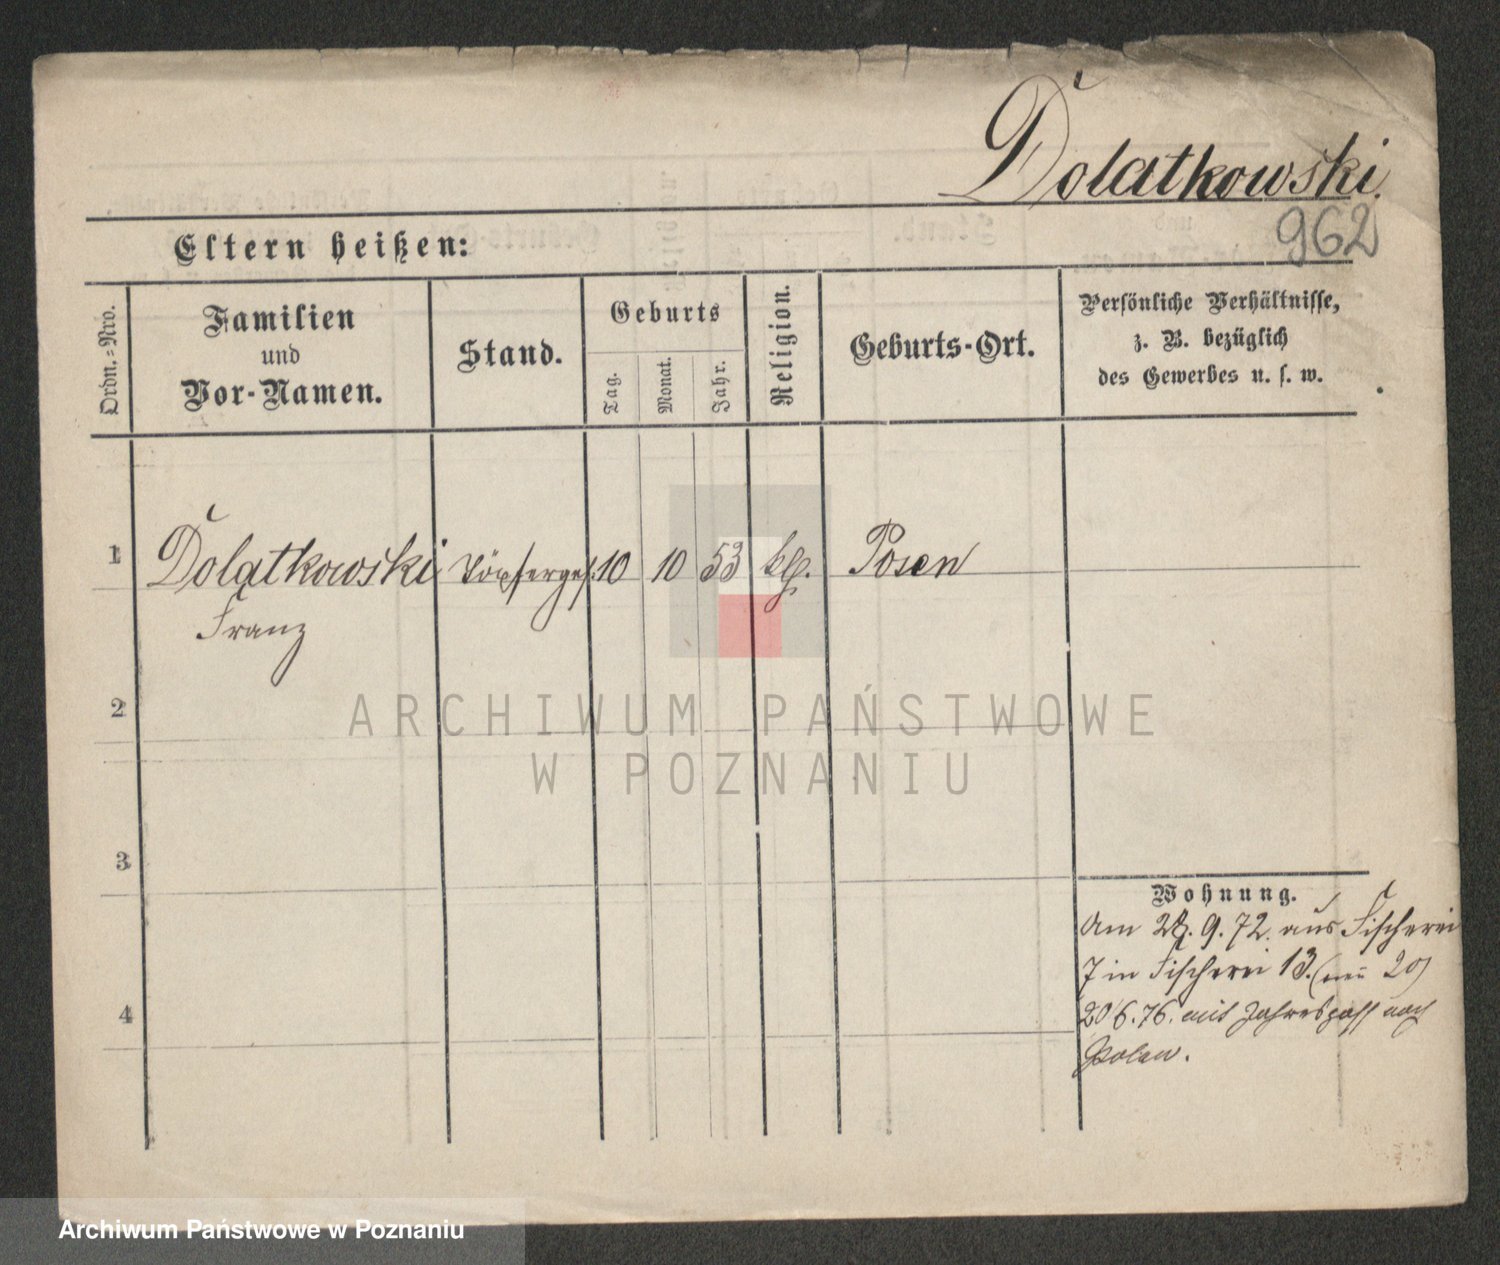 Dolatkowski.
962
Eltern heißen:
Ordn.=Nro.
Familien
und
Vor-Namen.
Stand.
Geburts
Tag.
Monat.
Jahr.
Religion.
Geburts-Ort.
Persönliche Verhältnisse,
z. B. bezüglich
des Gewerbes u. s. w.
1 Dolatkowski Töpferges. 10 10 53 kth. Posen
Franz
2
3
4
Wohnung.
Am 9. 72. aus Fischerei
7 in Fischerei 13. (neu 20)
20 6. 76. mit Jahrespaß nach
Polen.
ARCHIWUM PAŃSTWOWE
W POZNANIU
Archiwum Państwowe w Poznaniu